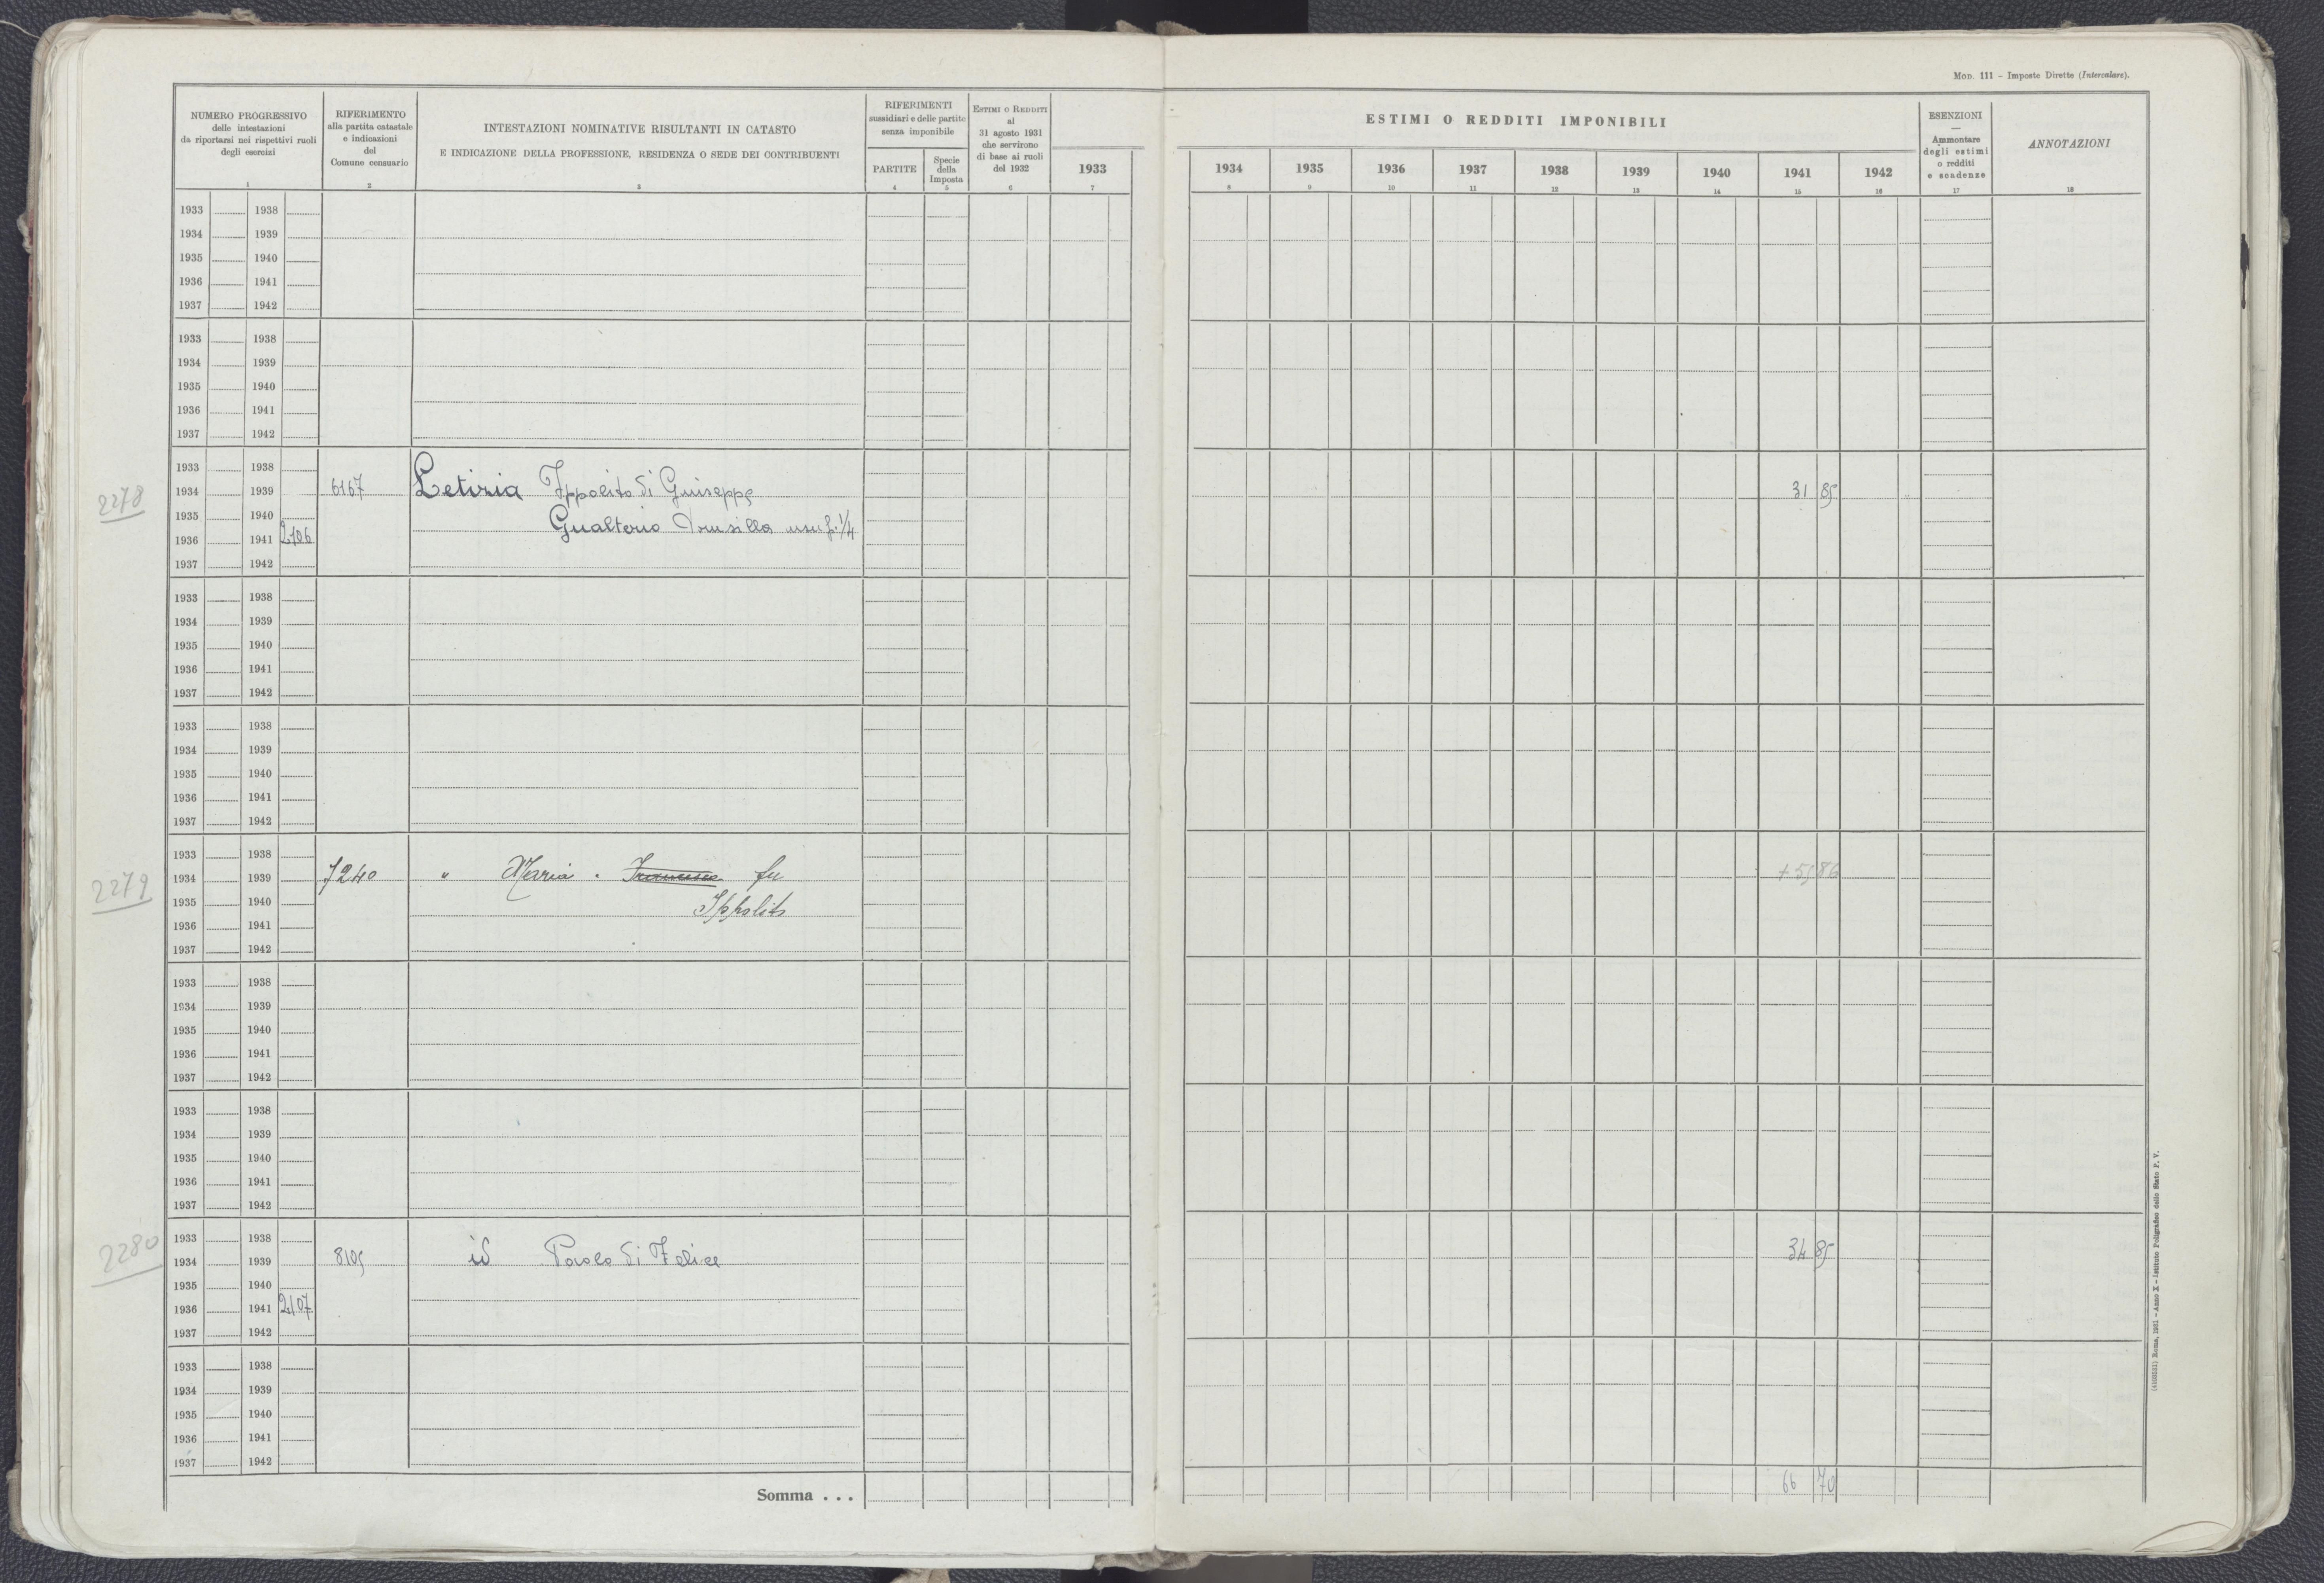 MOD. 111 – Imposte Dirette (Intercalare).
NUMERO PROGRESSIVO
delle intestazioni
da riportarsi nei rispettivi ruoli
degli esercizi
1
RIFERIMENTO
alla partita catastale
e indicazioni
del
Comune censuario
2
INTESTAZIONI NOMINATIVE RISULTANTI IN CATASTO
E INDICAZIONE DELLA PROFESSIONE, RESIDENZA O SEDE DEI CONTRIBUENTI
3
RIFERIMENTI
sussidiari e delle partite
senza imponibile
PARTITE
4
Specie
della
Imposta
5
ESTIMI O REDDITI
al
31 agosto 1931
che servirono
di base ai ruoli
del 1932
6
1933
7
ESTIMI O REDDITI IMPONIBILI
1934 1935 1936 1937 1938 1939 1940 1941 1942
8 9 10 11 12 13 14 15 16
ESENZIONI
—
Ammontare
degli estimi
o redditi
e scadenze
17
ANNOTAZIONI
18
1933 1938
1934 1939
1935 1940
1936 1941
1937 1942
1933 1938
1934 1939
1935 1940
1936 1941
1937 1942
1933 1938
2278 1934 1939 6167 Letizia Ippolito di Giuseppe 31 85
1935 1940 Gualterio Drusilla usuf. 1/4
1936 1941 2106
1937 1942
1933 1938
1934 1939
1935 1940
1936 1941
1937 1942
1933 1938
1934 1939
1935 1940
1936 1941
1937 1942
1933 1938
2279 1934 1939 7240 " Maria fu + 59 86
1935 1940 Ippolito
1936 1941
1937 1942
1933 1938
1934 1939
1935 1940
1936 1941
1937 1942
1933 1938
1934 1939
1935 1940
1936 1941
1937 1942
1933 1938
2280 1934 1939 8105 id Paolo di Felice 34 85
1935 1940
1936 1941 2107
1937 1942
1933 1938
1934 1939
1935 1940
1936 1941
1937 1942
Somma . . . 66 70
Roma, 1931 – Anno X – Istituto Poligrafico dello Stato P. V.